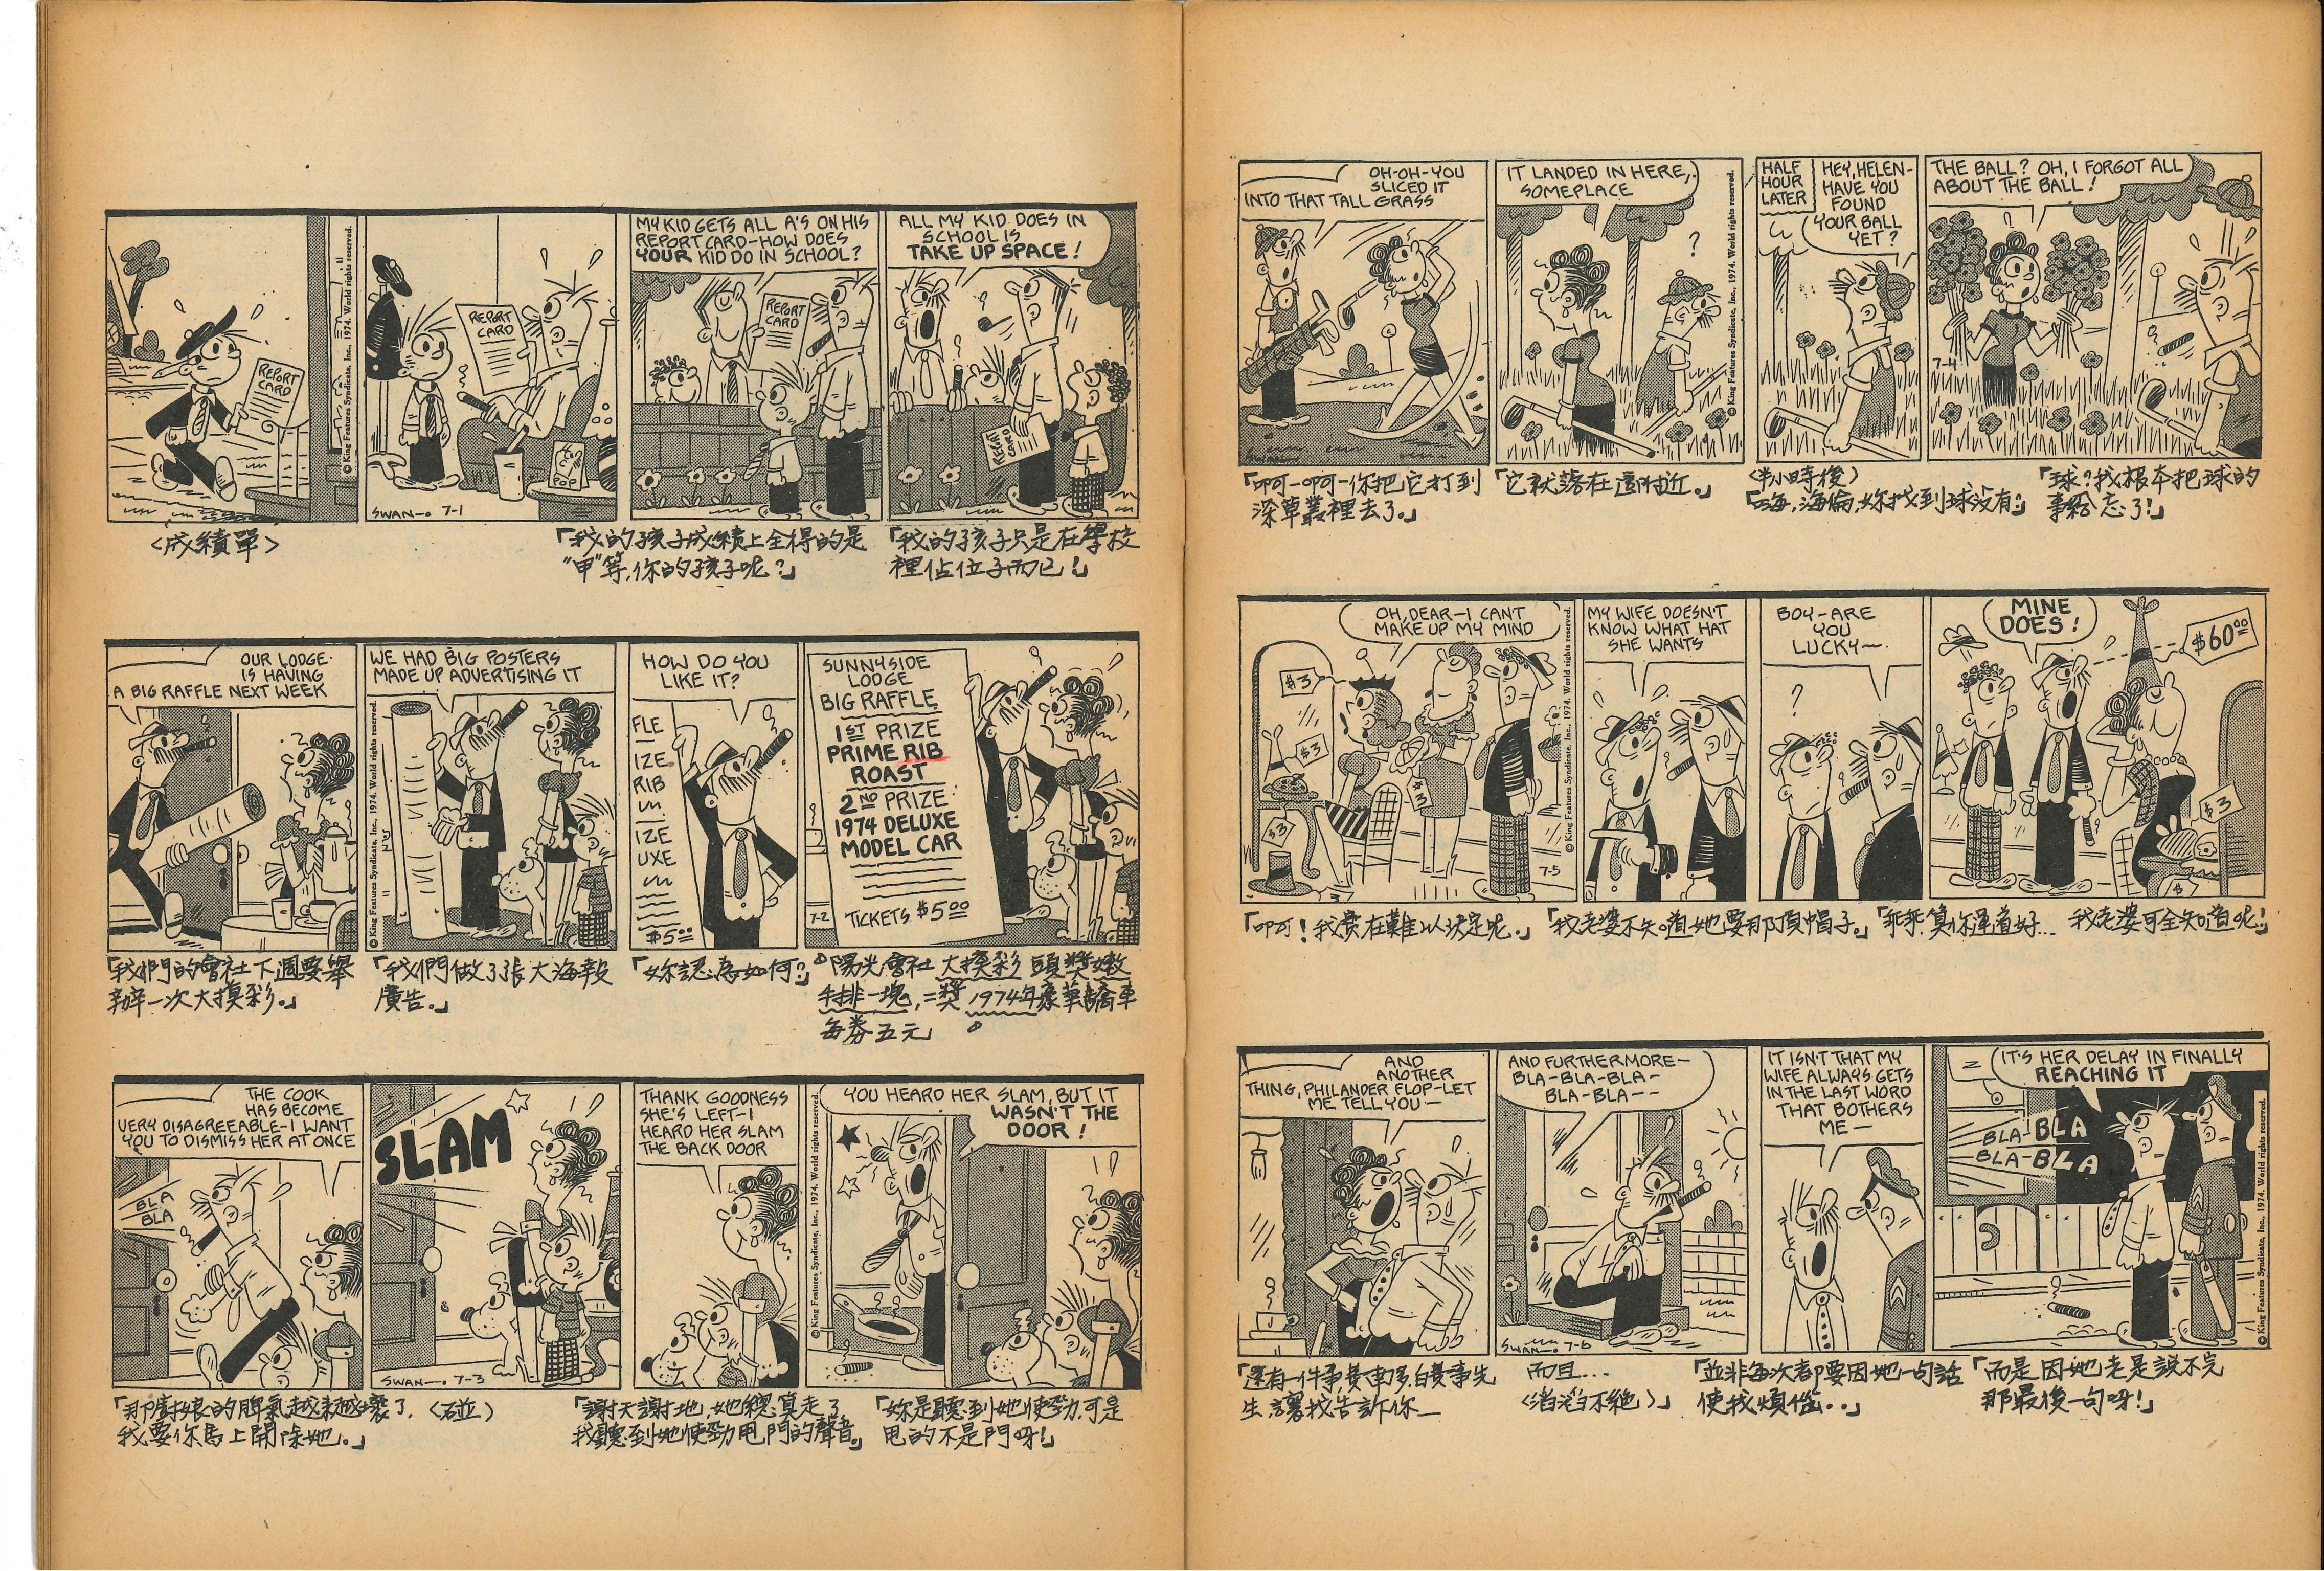 REPORT
CARD
© King Features Syndicate, Inc., 1974. World rights reserved.
REPORT
CARD
POP
SWAN— 7-1
MY KID GETS ALL A'S ON HIS
REPORT CARD—HOW DOES
YOUR KID DO IN SCHOOL?
REPORT
CARD
ALL MY KID DOES IN
SCHOOL IS
TAKE UP SPACE!
REPORT
CARD
〈成績單〉
「我的孩子成績上全得的是
"甲"等,你的孩子呢?」
「我的孩子只是在學校
裡佔位子而已!」
OUR LODGE
IS HAVING
A BIG RAFFLE NEXT WEEK
WE HAD BIG POSTERS
MADE UP ADVERTISING IT
© King Features Syndicate, Inc., 1974. World rights reserved.
HOW DO YOU
LIKE IT?
FLE
IZE
RIB
IZE
UXE
$5.00
SUNNYSIDE
LODGE
BIG RAFFLE
1ST PRIZE
PRIME RIB
ROAST
2ND PRIZE
1974 DELUXE
MODEL CAR
TICKETS $5.00
7-2
「我們的會社下週要舉
辦一次大摸彩。」
「我們做了張大海報
廣告。」
「妳認為如何?」
陽光會社 大摸彩 頭獎嫩
牛排一塊,二獎 1974年豪華轎車
每券五元」
THE COOK
HAS BECOME
VERY DISAGREEABLE—I WANT
YOU TO DISMISS HER AT ONCE
BLA
BLA
SLAM
SWAN— 7-3
THANK GOODNESS
SHE'S LEFT—I
HEARD HER SLAM
THE BACK DOOR
© King Features Syndicate, Inc., 1974. World rights reserved.
YOU HEARD HER SLAM, BUT IT
WASN'T THE
DOOR!
「那廚娘的脾氣越來越壞了,
我要你馬上開除她。」
〈砰〉
「謝天謝地,她總算走了
我聽到她使勁甩門的聲音。」
「妳是聽到她使勁,可是
甩的不是門呀!」
OH-OH-YOU
SLICED IT
INTO THAT TALL GRASS
IT LANDED IN HERE,
SOMEPLACE
?
© King Features Syndicate, Inc., 1974. World rights reserved.
HALF
HOUR
LATER
HEY, HELEN-
HAVE YOU
FOUND
YOUR BALL
YET?
THE BALL? OH, I FORGOT ALL
ABOUT THE BALL!
7-4
「啊—啊—你把它打到
深草叢裡去了。」
「它就落在這附近。」
〈半小時後〉
「嗨,海倫,妳找到球没有?」
「球?我根本把球的
事給忘了!」
OH, DEAR—I CAN'T
MAKE UP MY MIND
$3
$3
$3
$3
7-5
© King Features Syndicate, Inc., 1974. World rights reserved.
MY WIFE DOESN'T
KNOW WHAT HAT
SHE WANTS
BOY—ARE
YOU
LUCKY—
?
MINE
DOES!
$60.00
$3
$
「啊!我實在難以決定呢。」
「我老婆不知道她要那頂帽子。」
「乖乖,算你運道好...
我老婆可全知道呢!」
AND
ANOTHER
THING, PHILANDER FLOP—LET
ME TELL YOU—
AND FURTHERMORE—
BLA-BLA-BLA-
BLA-BLA--
SWAN— 7-6
IT ISN'T THAT MY
WIFE ALWAYS GETS
IN THE LAST WORD
THAT BOTHERS
ME—
IT'S HER DELAY IN FINALLY
REACHING IT
BLA-BLA
BLA-BLA
© King Features Syndicate, Inc., 1974. World rights reserved.
生,讓我告訴你—
而且...
〈滔滔不絕〉」
「並非每次都要因她一句話
使我煩惱..」
「而是因她老是說不完
那最後一句呀!」